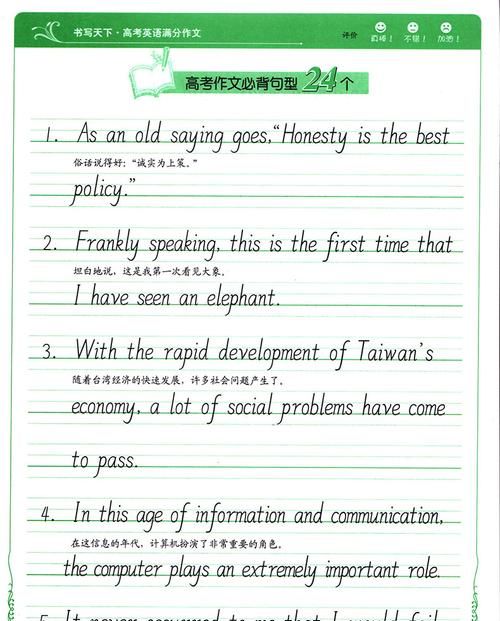 书写天下·高考英语满分作文
评价 真棒！ 不错！ 加油！
高考作文必背句型24个
1. As an old saying goes,“Honesty is the best
俗话说得好：“诚实为上策。”
policy.”
2. Frankly speaking, this is the first time that
坦白地说，这是我第一次看见大象。
I have seen an elephant.
3. With the rapid development of Taiwan's
随着台湾经济的快速发展，许多社会问题产生了。
economy, a lot of social problems have come
to pass.
4. In this age of information and communication,
在这信息的年代，计算机扮演了非常重要的角色。
the computer plays an extremely important role.
5. It never occurred to me that I would fail